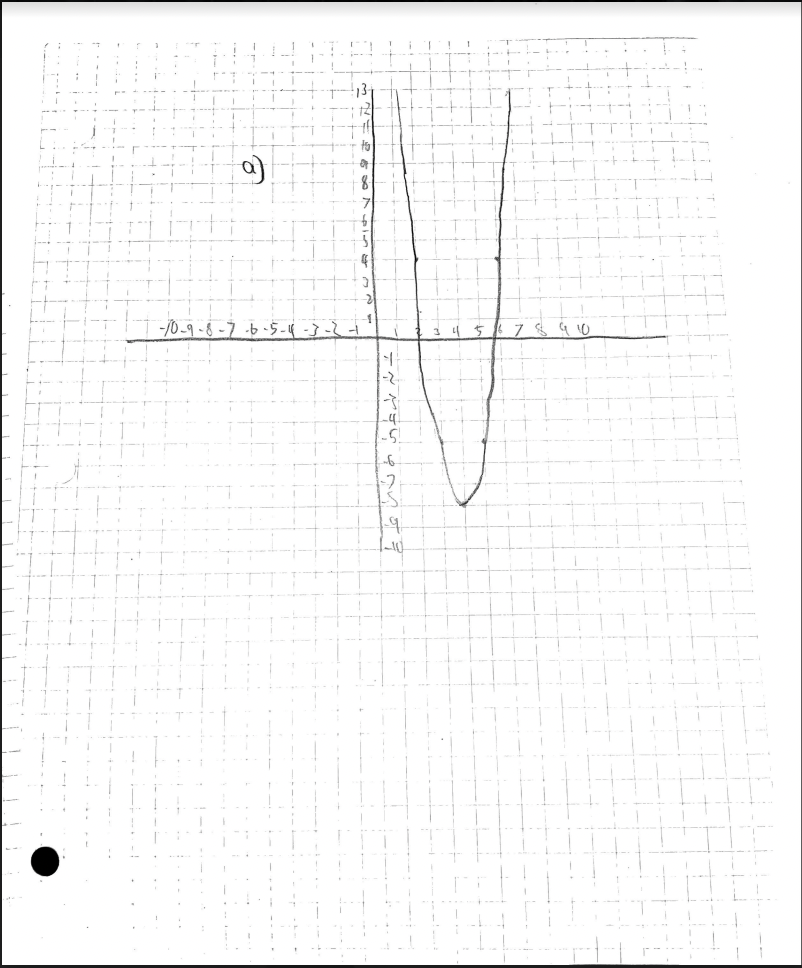 13
12
11
10
a)
9
8
7
6
5
4
3
2
1
-10 -9 -8 -7 -6 -5 -4 -3 -2 -1 1 2 3 4 5 6 7 8 9 10
-1
-2
-3
-4
-5
-6
-7
-8
-9
-10